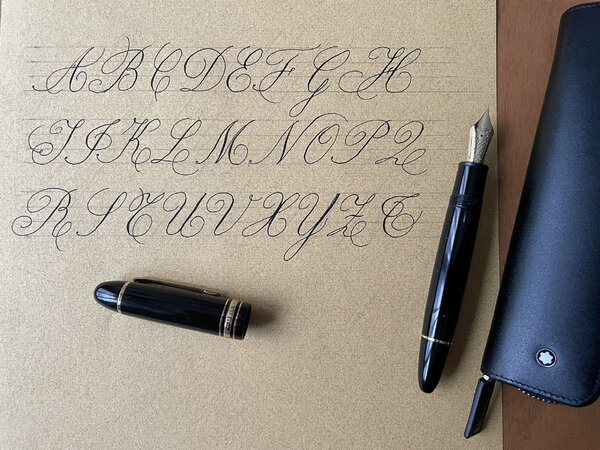 A B C D E F G H
I J K L M N O P Q
R S T U V X Y Z T